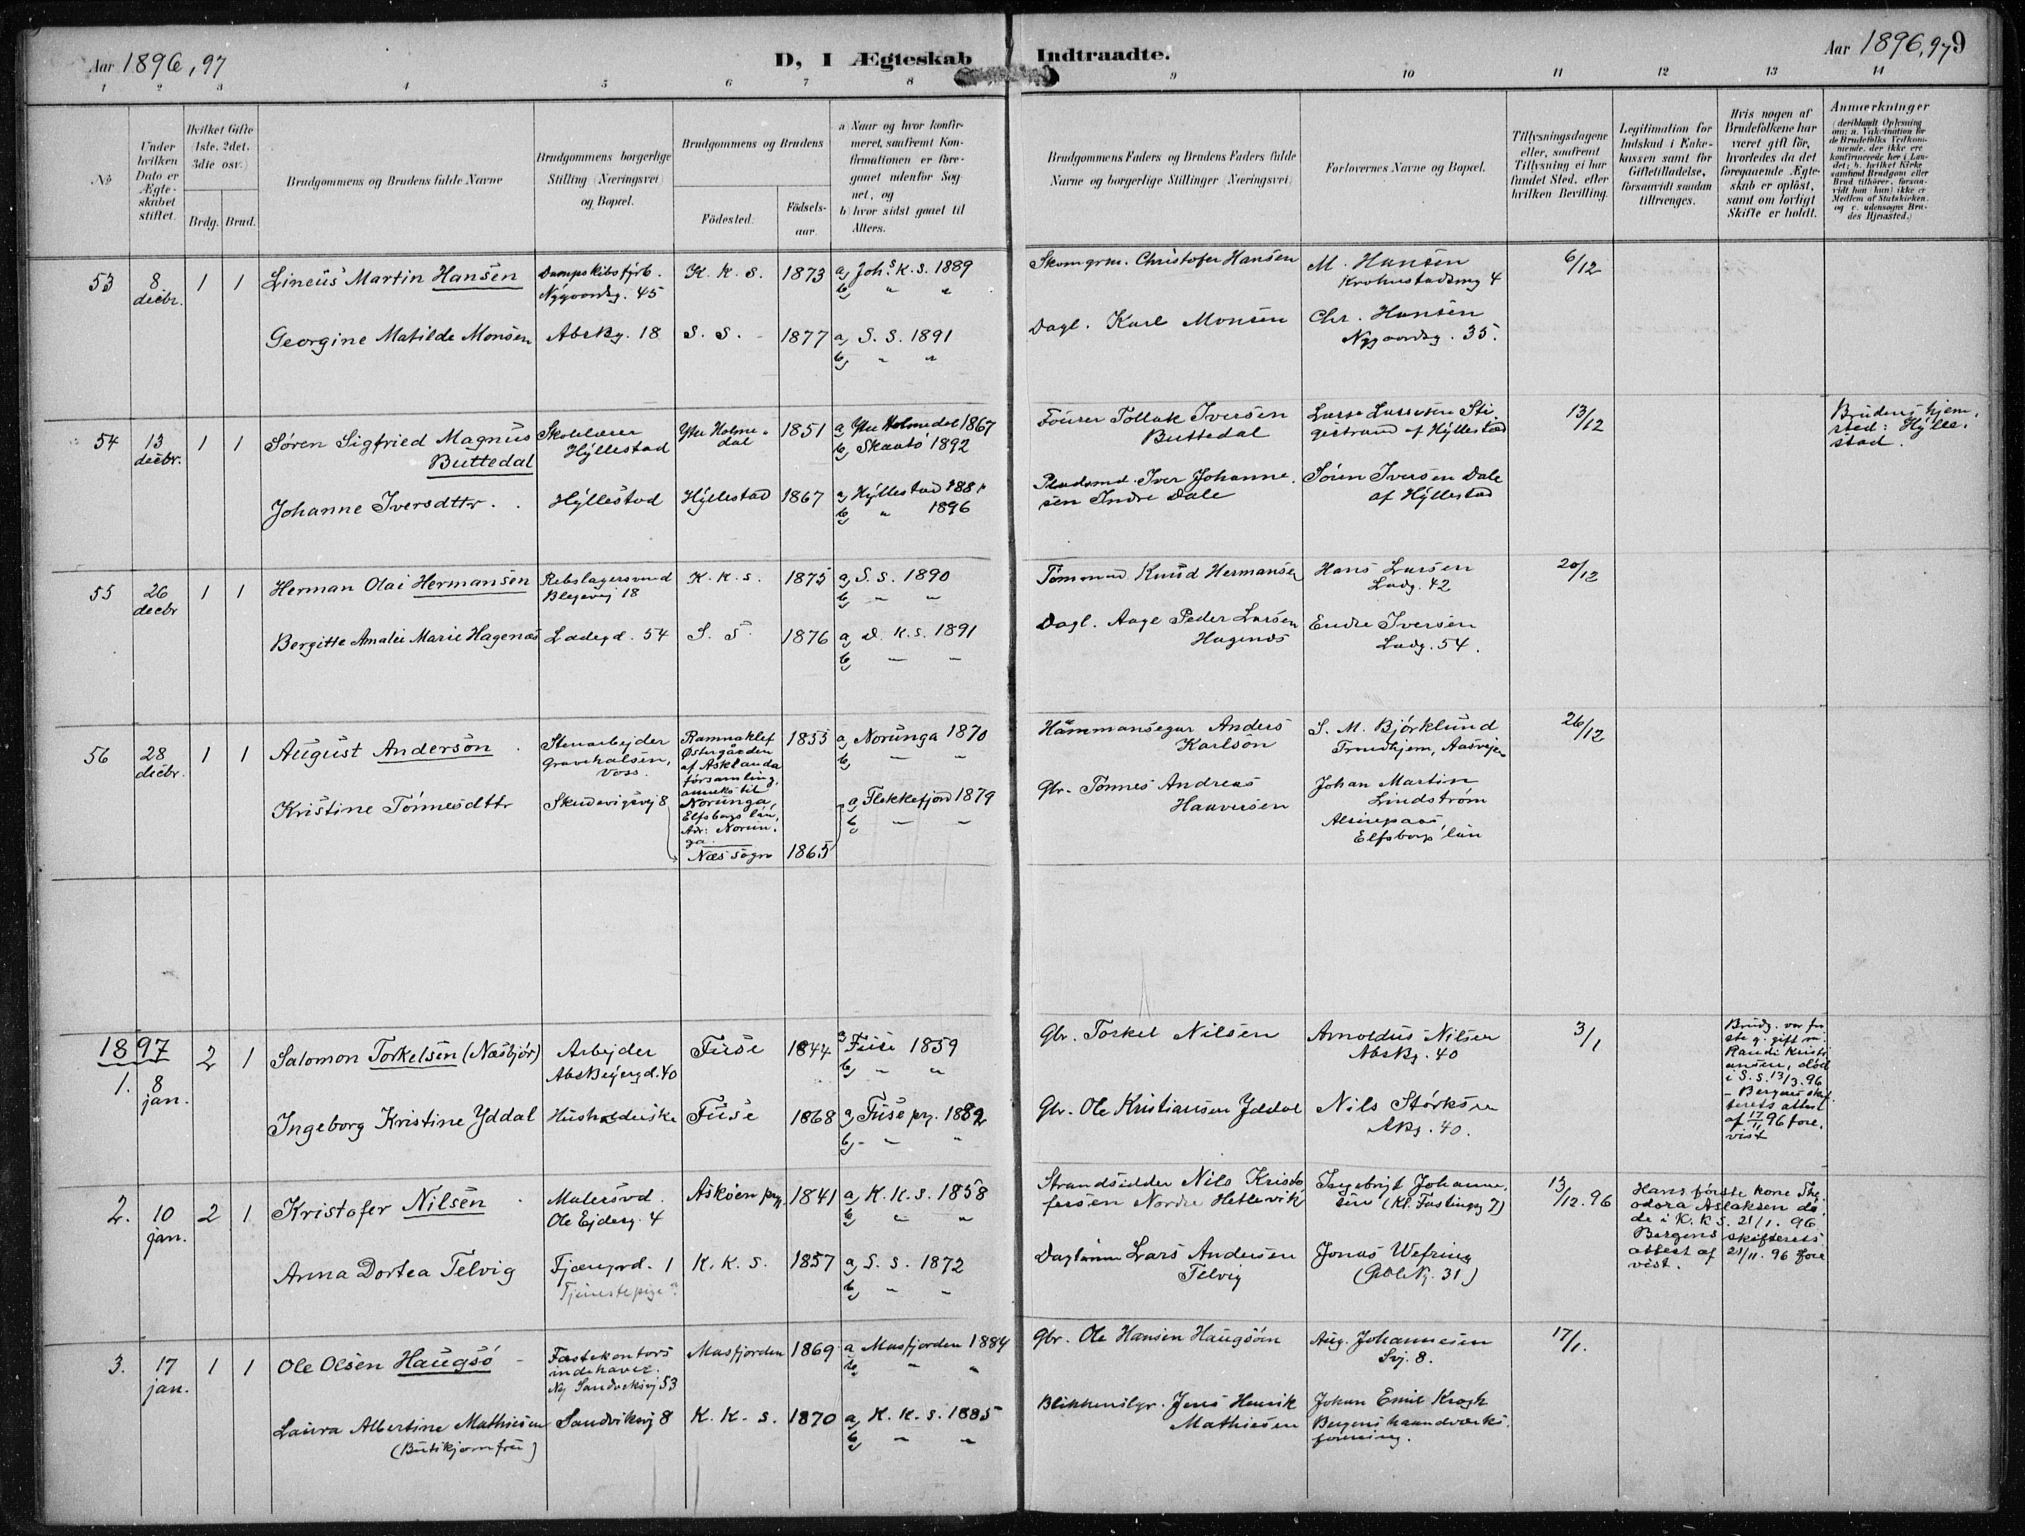 Aar 1896, 97
D, I Ægteskab Indtraadte.
Aar 1896, 97 9
1 2 3 4 5 6 7 8 9 10 11 12 13 14
No
Under hvilken Dato er Ægteskabet stiftet.
Hvilket Gifte (1ste, 2det, 3die osv.)
Brdg. Brud.
Brudgommens og Brudens fulde Navne
Brudgommens borgerlige Stilling (Næringsvei) og Bopæl.
Brudgommens og Brudens
Fødested.
Fødselsaar.
a) Naar og hvor konfirmeret, saafremt Konfirmationen er foregaaet udenfor Sognet, og
b) hvor sidst gaaet til Alters.
Brudgommens Faders og Brudens Faders fulde Navne og borgerlige Stillinger (Næringsvei)
Forlovernes Navne og Bopæl.
Tillysningsdagene eller, saafremt Tillysning ei har fundet Sted, efter hvilken Bevilling.
Legitimation for Indskud i Enkekassen samt for Giftetilladelse, forsaavidt saadan tiltrænges.
Hvis nogen af Brudefolkene har været gift før, hvorledes da det foregaaende Ægteskab er opløst, samt om lovligt Skifte er holdt.
Anmærkninger
(deriblandt Oplysning om: a. Vakcination for de Brudefolks Vedkommende, der ikke ere konfirmerede her i Landet; b. hvilket Kirkesamfund Brudgom eller Brud tilhører, forsaavidt han (hun) ikke er Medlem af Statskirken, og c. udensogns Brudes Hjemsted.)
53
8 decbr.
1 1
Lineüs Martin Hansen
Dampskibsfyrb. Nygaardsg. 45
K. K. S.
1873
a) Joh.s K. S. 1889
b) " "
Skomgrm. Christofer Hansen
M. Hansen
Krohnstadsvg 4
6/12
Georgine Matilde Monsen
Abskg. 18
S. S.
1877
a) S. S. 1891
b) " "
Dagl. Karl Monsen
Chr. Hansen
Nygaardsg. 35.
54
13 decbr.
1 1
Søren Sigfried Magnus Buttedal
Skolelærer Hyllestad
Ytre Holmedal
1851
a) Ytre Holmedal 1867
b) Skaatø 1892
Fourer Tollak Iversen Buttedal
Lasse Lassesen Stigestrand af Hyllestad
13/12
Brudens hjemsted: Hyllestad.
Johanne Iversdttr.
Hyllestad
Hyllestad
1867
a) Hyllestad 1881
b) " 1896
Pladsmd. Iver Johannesen Indre Dale
Søren Iversen Dale af Hyllestad
55
26 decbr
1 1
Herman Olai Hermansen
Rebslagersvend
Blegevej 18
K. K. S.
1875
a) S. S. 1890
b) " "
Tømmmd Knud Hermansen
Hans Larsen
Ladg. 42
20/12
Bergitte Amalie Marie Hagenæs
Ladegd. 54
S. S.
1876
a) D. K. S. 1891
b) " "
Dagl. Aage Peder Larsen Hagenæs
Endre Iversen
Ladg. 54.
56
28 decbr.
1 1
August Anderson
Stenarbejder
Gravehalsen, Voss.
Ramnaklef Østergården af Asklanda församling, anneks til Norunga, Elfsborgs län, Adr: Norunga.
1855
a) Norunga 1870
b) " "
Hämmansegar Anders Karlson
S. M. Björklund
Trondhjem, Aasvejen
26/12
Kristine Tönnesdttr
Skudevigsvej 8
Næs sogn
1865
a) Flekkefjord 1879
b) " "
Gbr. Tönnes Andreas Haaversen
Johan Martin Lindström
Alsingsaas, Elfsborgs län
1897
1. 8 jan.
2 1
Salomon Torkelsen (Næsbjør)
Arbejder
Abs Beyergd. 40
Fuse
1844
a) Fuse 1859
b) " "
Gbr. Torkel Nilsen
Arnoldus Nilsen
Abskg. 40
3/1
Brudg. var første g. gift m. Randi Kristiansen, død i S. S. 13/3. 96 – Bergens skifterets attest af 17/11 96 forevist
Ingeborg Kristine Yddal
Husholderske
Fuse
1868
a) Fuse pg. 1882
b) " "
Gbr. Ole Kristiansen Yddal
Nils Størksen
Akg. 40.
2.
10 jan.
2 1
Kristofer Nilsen
Malersvd.
Ole Ejdesg. 4
Askøen pg.
1841
a) K. K. S. 1858
b) " "
Strandsidder Nils Kristofersen Nordre Hetlevik
Ingebrigt Johannesen (Kl. Fastingsg 7)
13/12. 96
Hans første kone Theodora Aslaksen døde i K. K S. 21/1. 96. Bergens skifterets attest af 21/11. 96 forevist.
Anna Dortea Telvig
Fjæregrd. 1
Tjenestepige
K. K. S.
1857
a) S. S. 1872
b) " "
Dagløinn Lars Andersen Telvig
Jonas Wefring
31)
3.
17 jan.
1 1
Ole Olsen Haugsø
Fæstekontorsindehaver.
Ny Sandviksvj 53
Masfjorden
1869
a) Masfjorden 1884
b) " "
Gbr. Ole Hansen Haugsøen
Aug. Johannesen
Svj. 8.
17/1.
Laura Albertine Mathiesen
(Butikjomfru)
Sandviksvj 8
K. K. S.
1870
a) K. K. S. 1885
b) " "
Blikkenslgr. Jens Henrik Mathiesen
Johan Emil Krogh
Bergens haandværksforening.